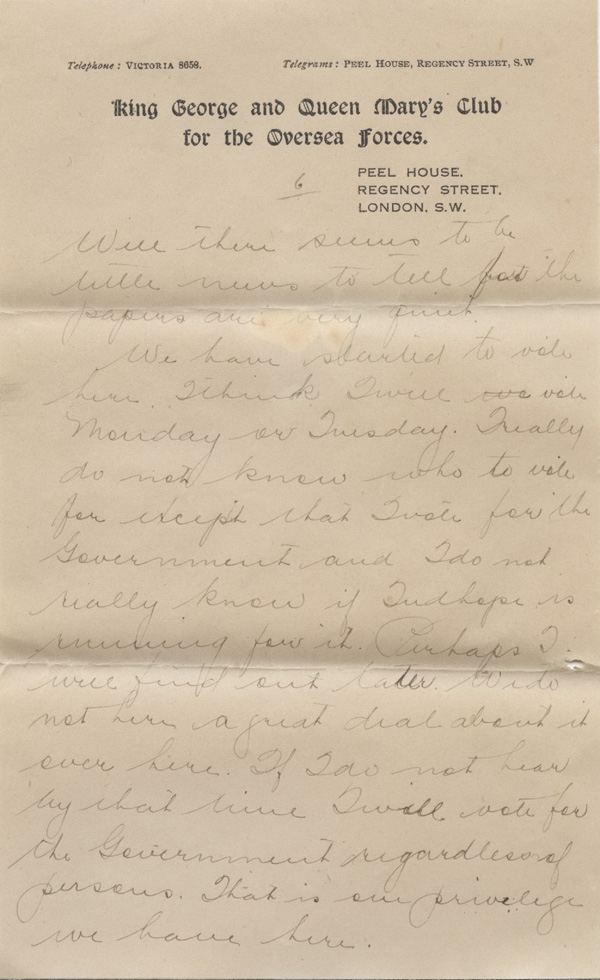 Telephone: VICTORIA 8658. Telegrams: PEEL HOUSE, REGENCY STREET, S.W
King George and Queen Mary's Club
for the Oversea Forces.
6
PEEL HOUSE.
REGENCY STREET.
LONDON, S.W.
Well there seems to be
little news to tell for the
papers are very quiet.
We have started to vote
here. I think I will vote
Monday or Tuesday. I really
do not know who to vote
for except that I vote for the
Government and I do not
really know if Tudhope is
running for it. Perhaps I
will find out later. We do
not here a great deal about it
over here. If I do not hear
by that time I will vote for
the Government regardless of
persons. That is one privelige
we have here.